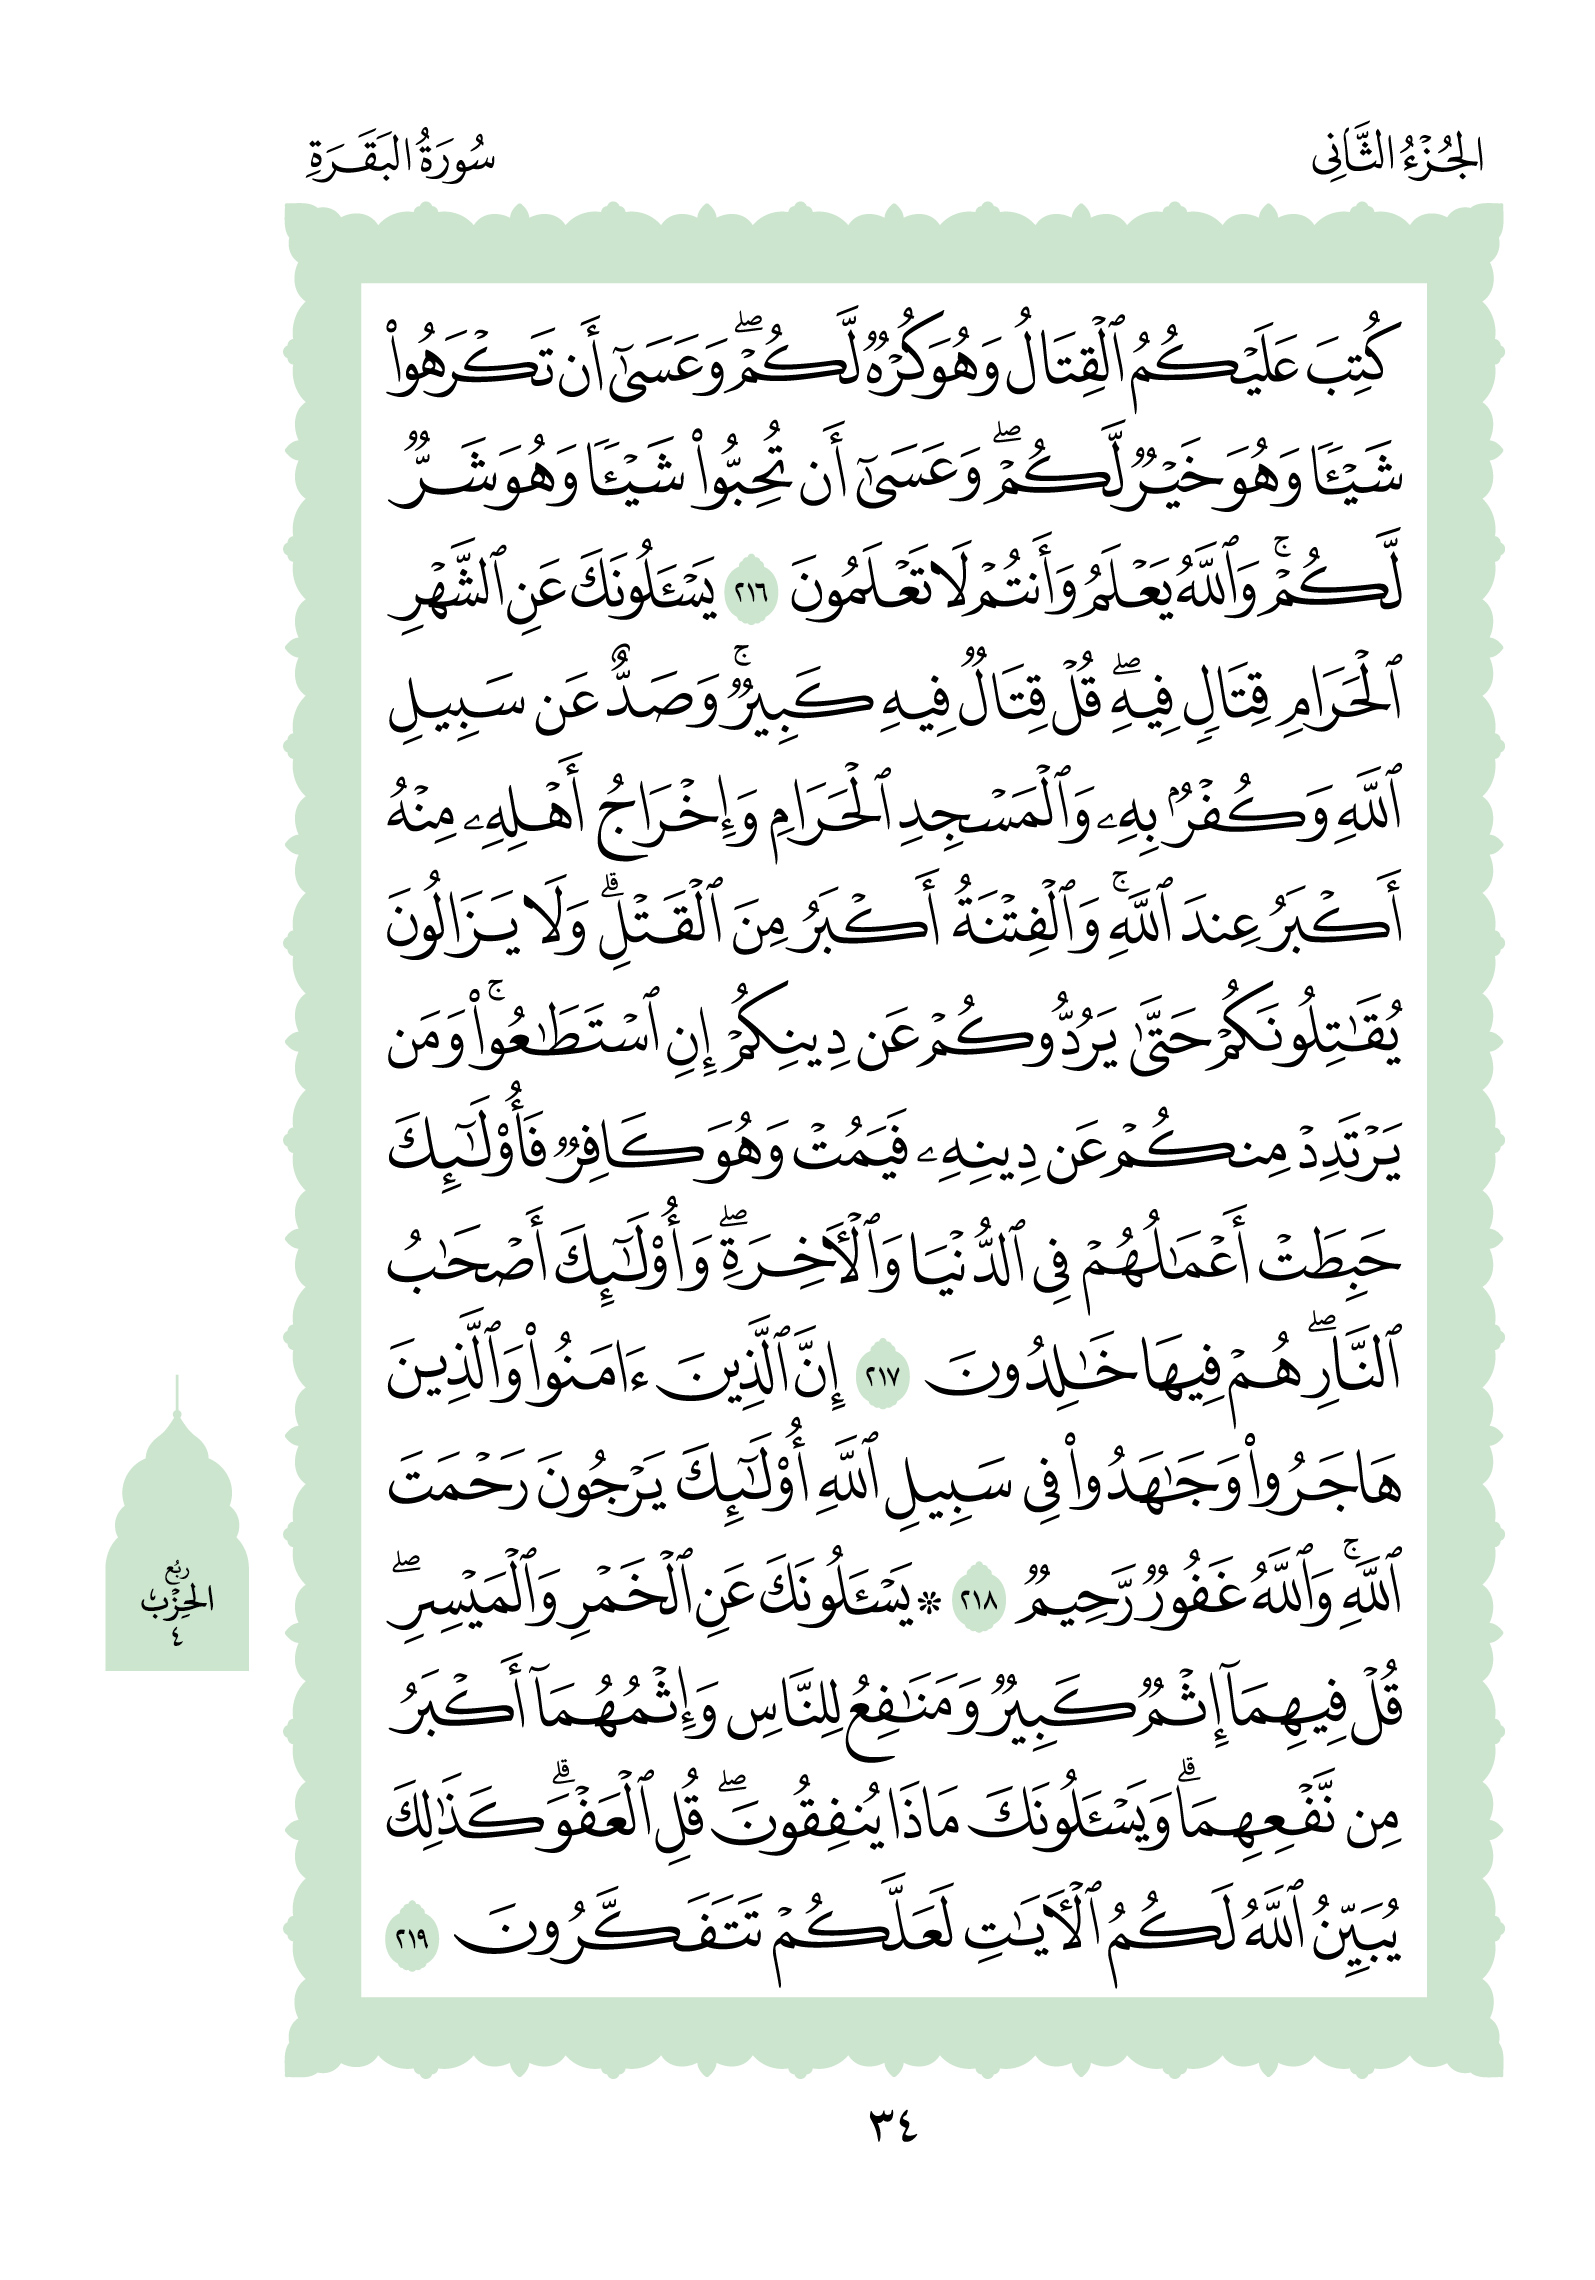 الجُزْءُ الثَّانِى
سُورَةُ البَقَرَةِ
كُتِبَ عَلَيْكُمُ ٱلْقِتَالُ وَهُوَ كُرْهٌ لَّكُمْ ۖ وَعَسَىٰٓ أَن تَكْرَهُوا۟
شَيْـًٔا وَهُوَ خَيْرٌ لَّكُمْ ۖ وَعَسَىٰٓ أَن تُحِبُّوا۟ شَيْـًٔا وَهُوَ شَرٌّ
لَّكُمْ ۚ وَٱللَّهُ يَعْلَمُ وَأَنتُمْ لَا تَعْلَمُونَ ٢١٦ يَسْـَٔلُونَكَ عَنِ ٱلشَّهْرِ
ٱلْحَرَامِ قِتَالٍ فِيهِ ۖ قُلْ قِتَالٌ فِيهِ كَبِيرٌ ۚ وَصَدٌّ عَن سَبِيلِ
ٱللَّهِ وَكُفْرٌۢ بِهِۦ وَٱلْمَسْجِدِ ٱلْحَرَامِ وَإِخْرَاجُ أَهْلِهِۦ مِنْهُ
أَكْبَرُ عِندَ ٱللَّهِ ۚ وَٱلْفِتْنَةُ أَكْبَرُ مِنَ ٱلْقَتْلِ ۗ وَلَا يَزَالُونَ
يُقَـٰتِلُونَكُمْ حَتَّىٰ يَرُدُّوكُمْ عَن دِينِكُمْ إِنِ ٱسْتَطَـٰعُوا۟ ۚ وَمَن
يَرْتَدِدْ مِنكُمْ عَن دِينِهِۦ فَيَمُتْ وَهُوَ كَافِرٌ فَأُو۟لَـٰٓئِكَ
حَبِطَتْ أَعْمَـٰلُهُمْ فِى ٱلدُّنْيَا وَٱلْـَٔاخِرَةِ ۖ وَأُو۟لَـٰٓئِكَ أَصْحَـٰبُ
ٱلنَّارِ ۖ هُمْ فِيهَا خَـٰلِدُونَ ٢١٧ إِنَّ ٱلَّذِينَ ءَامَنُوا۟ وَٱلَّذِينَ
هَاجَرُوا۟ وَجَـٰهَدُوا۟ فِى سَبِيلِ ٱللَّهِ أُو۟لَـٰٓئِكَ يَرْجُونَ رَحْمَتَ
ٱللَّهِ ۚ وَٱللَّهُ غَفُورٌ رَّحِيمٌ ٢١٨ * يَسْـَٔلُونَكَ عَنِ ٱلْخَمْرِ وَٱلْمَيْسِرِ ۖ
قُلْ فِيهِمَآ إِثْمٌ كَبِيرٌ وَمَنَـٰفِعُ لِلنَّاسِ وَإِثْمُهُمَآ أَكْبَرُ
مِن نَّفْعِهِمَا ۗ وَيَسْـَٔلُونَكَ مَاذَا يُنفِقُونَ ۖ قُلِ ٱلْعَفْوَ ۗ كَذَٰلِكَ
يُبَيِّنُ ٱللَّهُ لَكُمُ ٱلْـَٔايَـٰتِ لَعَلَّكُمْ تَتَفَكَّرُونَ ٢١٩
ربُع
الحِزْب
٤
٣٤